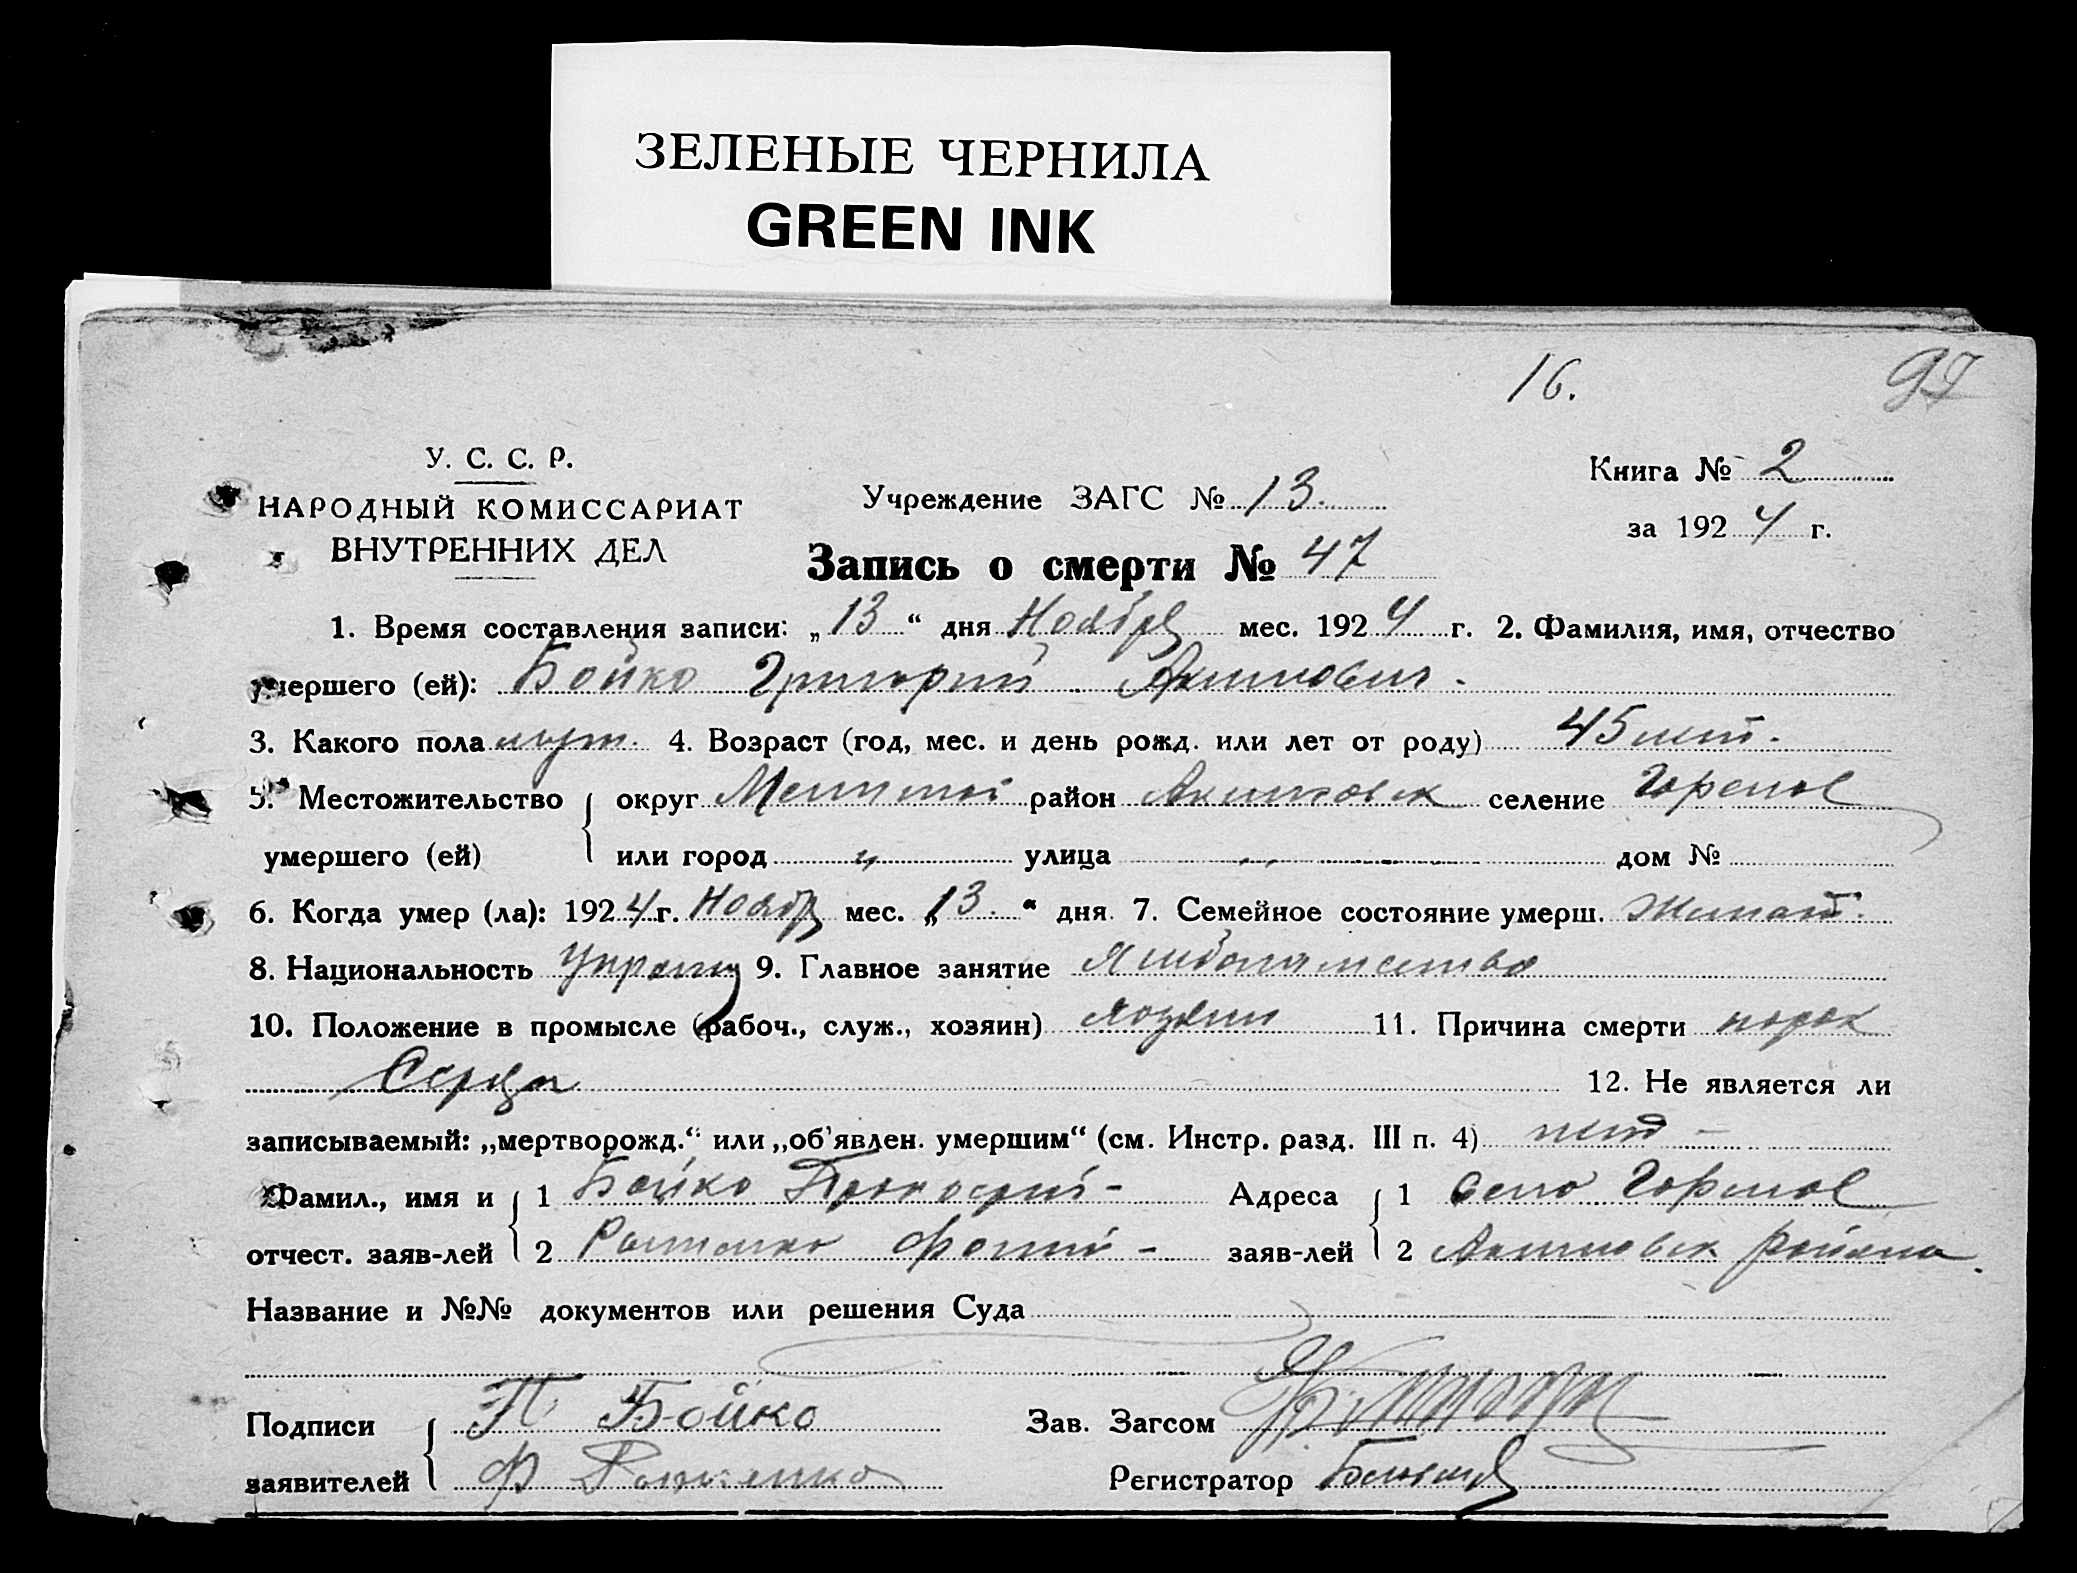 ЗЕЛЕНЫЕ ЧЕРНИЛА
GREEN INK
16. 97
У. С. С. Р.
НАРОДНЫЙ КОМИССАРИАТ
ВНУТРЕННИХ ДЕЛ
Учреждение ЗАГС № 13.
Книга № 2
за 1924 г.
Запись о смерти № 47
1. Время составления записи: „13“ дня Ноября мес. 1924 г. 2. Фамилия, имя, отчество
умершего (ей): Бойко Григорий Акимович.
3. Какого пола муж. 4. Возраст (год, мес. и день рожд. или лет от роду) 45 лет.
5. Местожительство округ Мелитоп район Акимовск селение
умершего (ей) или город „ улица „ дом №
6. Когда умер (ла): 1924 г. Ноябр мес. „13.“ дня. 7. Семейное состояние умерш. Женат.
8. Национальность Украин 9. Главное занятие Хлебопашество
10. Положение в промысле (рабоч., служ., хозяин) хозяин 11. Причина смерти порок
Сердца 12. Не является ли
записываемый: „мертворожд.“ или „об’явлен. умершим“ (см. Инстр. разд. III п. 4) нет –
Фамил., имя и 1 Бойко Прокофий – Адреса 1 Село
отчест. заяв-лей 2 – заяв-лей 2 Акимовск района.
Название и №№ документов или решения Суда
Подписи П Бойко Зав. Загсом
заявителей Ф Регистратор